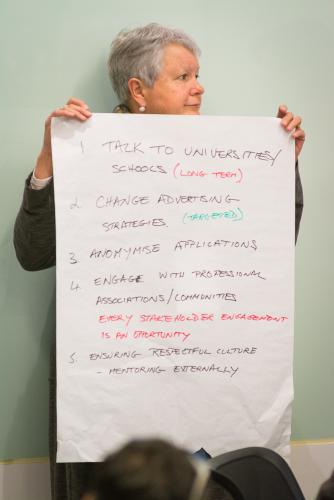 1 TALK TO UNIVERSITIES/
SCHOOLS (LONG TERM)
2. CHANGE ADVERTISING
STRATEGIES (TARGETED)
3. ANOMYMISE APPLICATIONS
4. ENGAGE WITH PROFESSIONAL
ASSOCIATIONS/COMMUNITIES
EVERY STAKEHOLDER ENGAGEMENT
IS AN OPORTUNITY
5. ENSURING RESPECTFUL CULTURE
- MENTORING EXTERNALLY